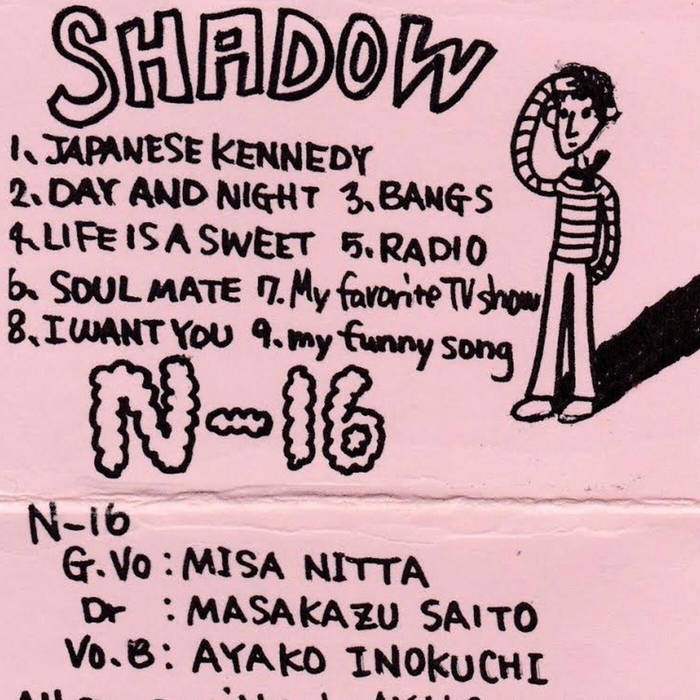 SHADOW
1、JAPANESE KENNEDY
2、DAY AND NIGHT 3、BANGS
4、LIFE IS A SWEET 5、RADIO
6、SOUL MATE 7、My favorite TV show
8、I WANT YOU 9、my funny song
N-16
N-16
G.Vo : MISA NITTA
Dr : MASAKAZU SAITO
Vo.B : AYAKO INOKUCHI